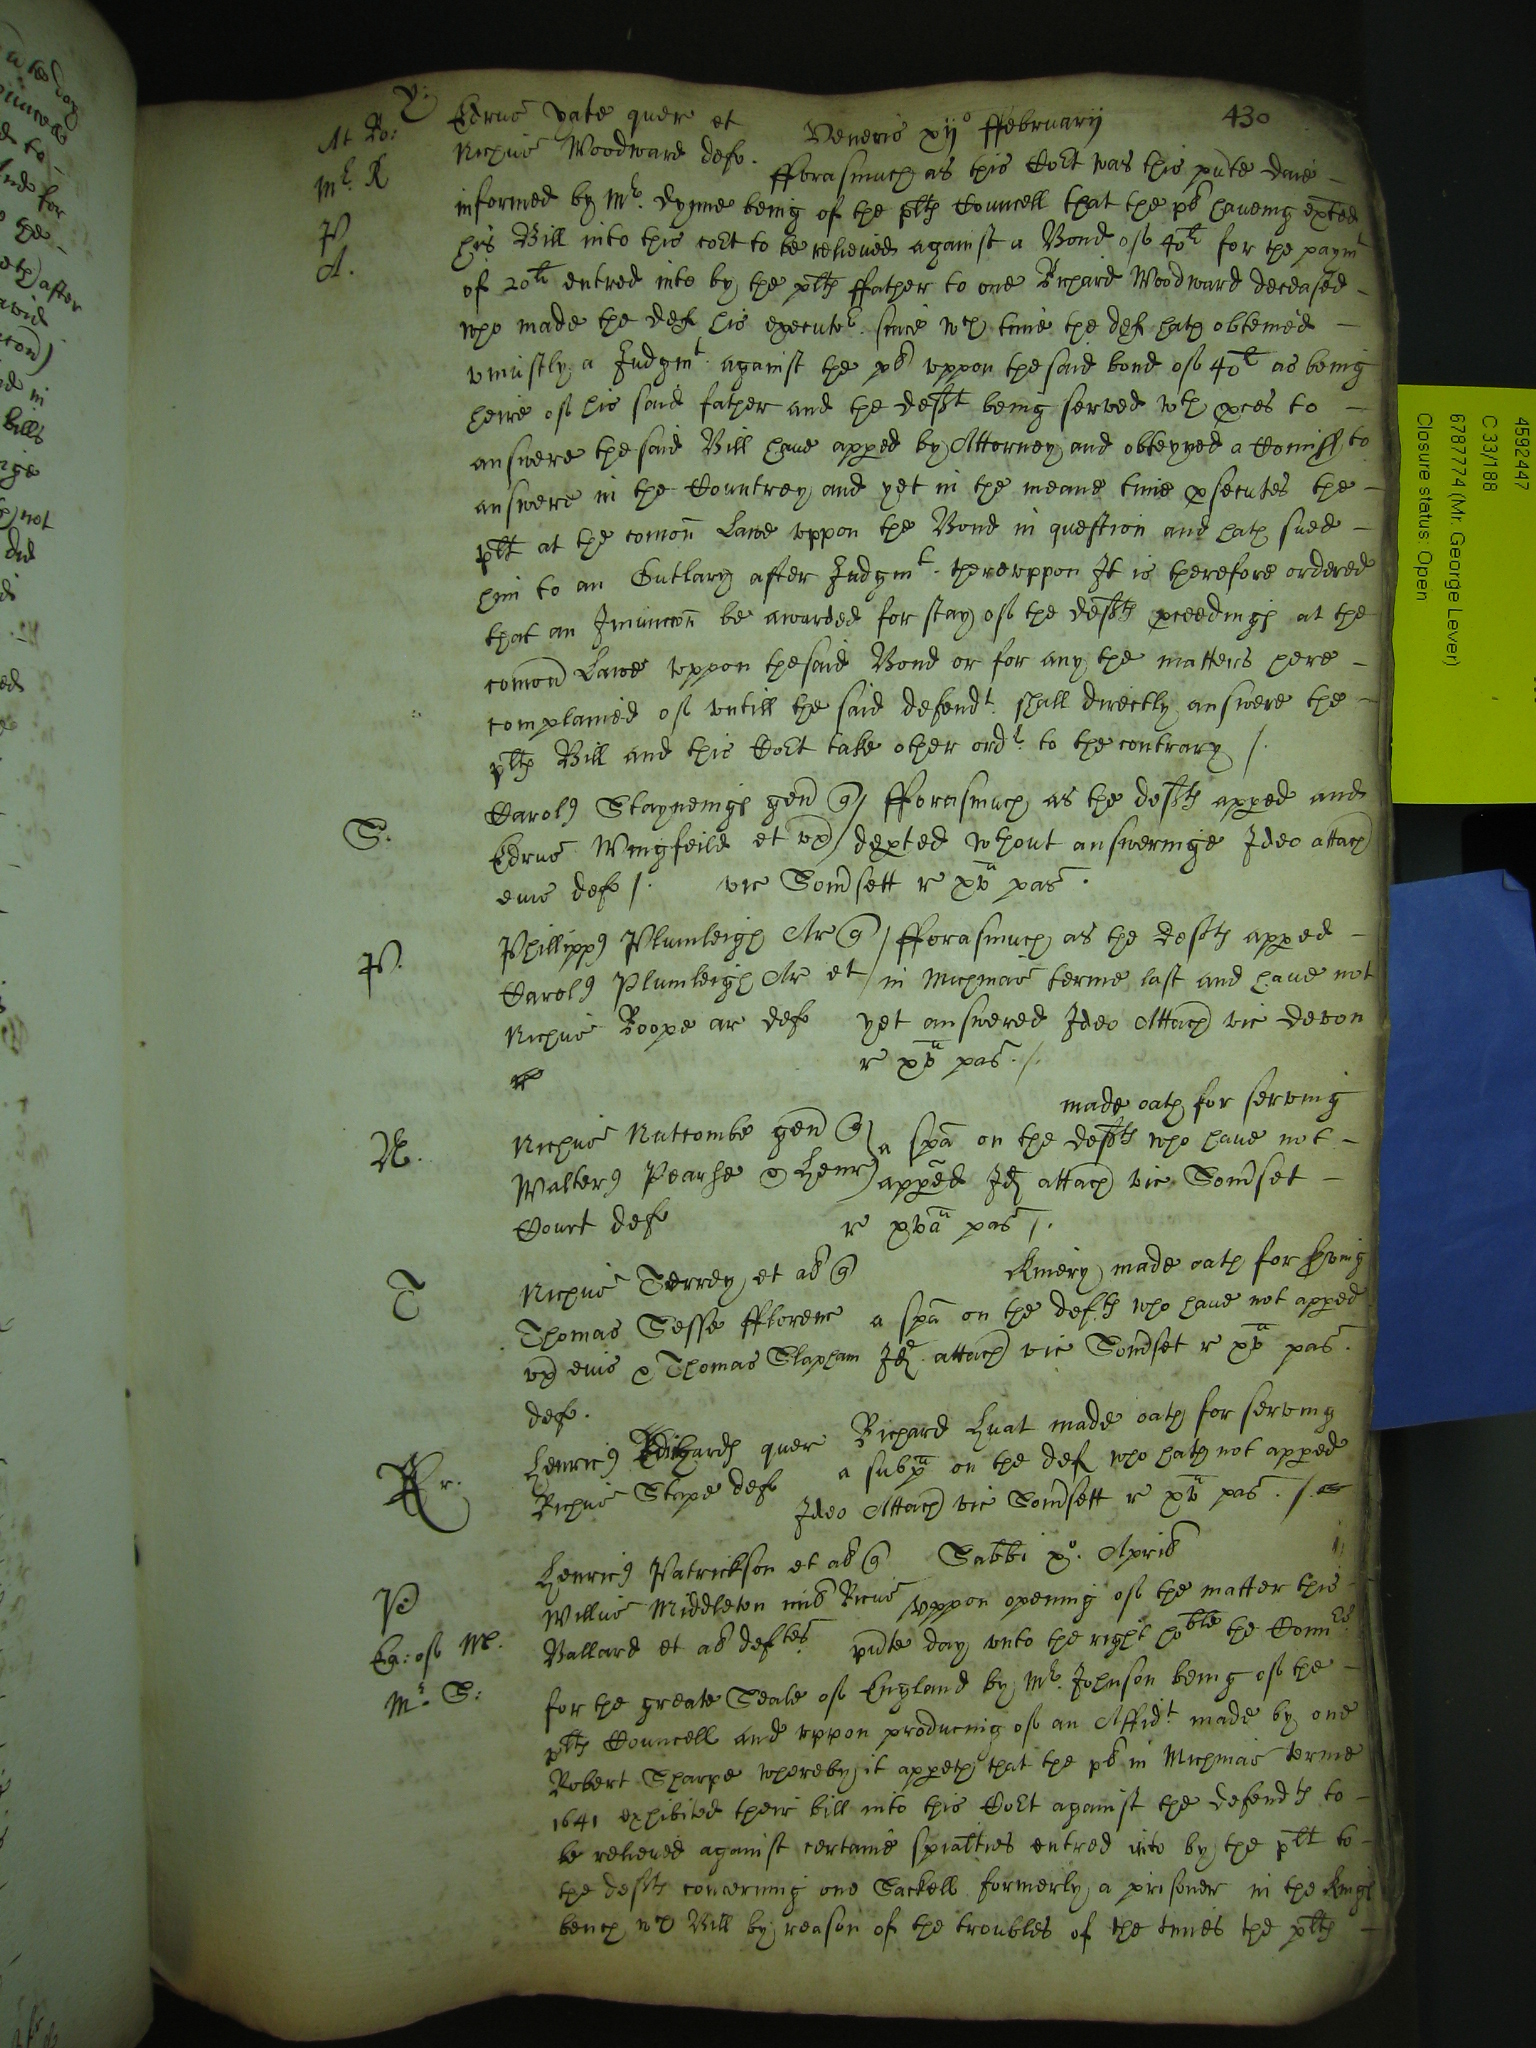 430
Y:
Edrus yate quer et Veneris xijo ffebruarij
At Ro:
Nichus Woodward defs. fforasmuch as this Cort was this pnte daie
Mr. R
informed by Mr. Dynne being of the plts Councell that the pl haveing exted
P
his Bill into this cort to be relieved against a Bond of 40li for the paymt
A.
of 20li entred into by the plts ffather to one Richard Woodward deceased
who made the def his executor. since wch time the def hath obteined
uniustly a Judgmt against the pl uppon the said bond of 40li as being
heire of his said father and the deft being served wth pces to
answere the said Bill have apped by Attorney and obteyned a Comiss to
answere in the Countrey and yet in the meane time psecutes the
plt at the comon Lawe uppon the Bond in question and hath sued
him to an Outlary after Judgmt. thereuppon It is therefore ordered
that an Iniunccon be awarded for stay of the defts pceedings at the
comon Lawe uppon the said Bond or for any the matters here
complained of untill the said defendt. shall directly answere the
plts Bill and this Cort take other ordr to the contrary /.
Carols Stayneings gen q / fforasmuch as the defts apped and
S.
Edrus Wingfeild et ux / depted wthout answeringe Ideo attach
eius defs /. vic Somsett r xva pas.
Phillipps Plumleigh Ar q / fforasmuch as the defts apped
P.
Carols Plumleigh Ar et / in Michmas terme last and have not
Nichus Roope ar defs yet answered Ideo Attach vic devon
r xva pas. /.
made oath for serving
N.
Nichus Nutcombe gen q / a spa on the defts who have not
Walters Pearse & Henr / apped Id attach vic Somset
Court defs r xva pas /.
T
Nichus Terrey et al q Emery made oath for serving
Thomas Sesse fflorenc a spa on the defts who have not apped
ux eius & Thomas Clapham Id attach vic Somset r xva pas.
defs.
Henrics Richards quer Richard Huat made oath for serving
Rr.
Richus Stape defs a subpa on the def who hath not apped
Ideo Attach vic Somsett r xva pas. /.
Henrics Patrickson et al q Sabbi xo. April
P
Willus Middleton mil Ricus uppon opening of the matter this
Ea: of M.
Ballard et al deftes pnte day unto the right hoble the Comrs
Mr. S:
for the greate Seale of England by Mr. Johnson being of the
plts Councell and uppon producing of an Affidt made by one
Robert Sharpe whereby it appeth that the pl in Michmas terme
1641 exhibited their bill into this Cort against the defendts to
be relieved against certaine spialties entred into by the plt to
the defts concerning one Sackell formerly a prisoner in the Kings
bench wch Bill by reason of the troubles of the times the plts
4592447
C 33/188
6787774 (Mr. George Lever)
Closure status: Open